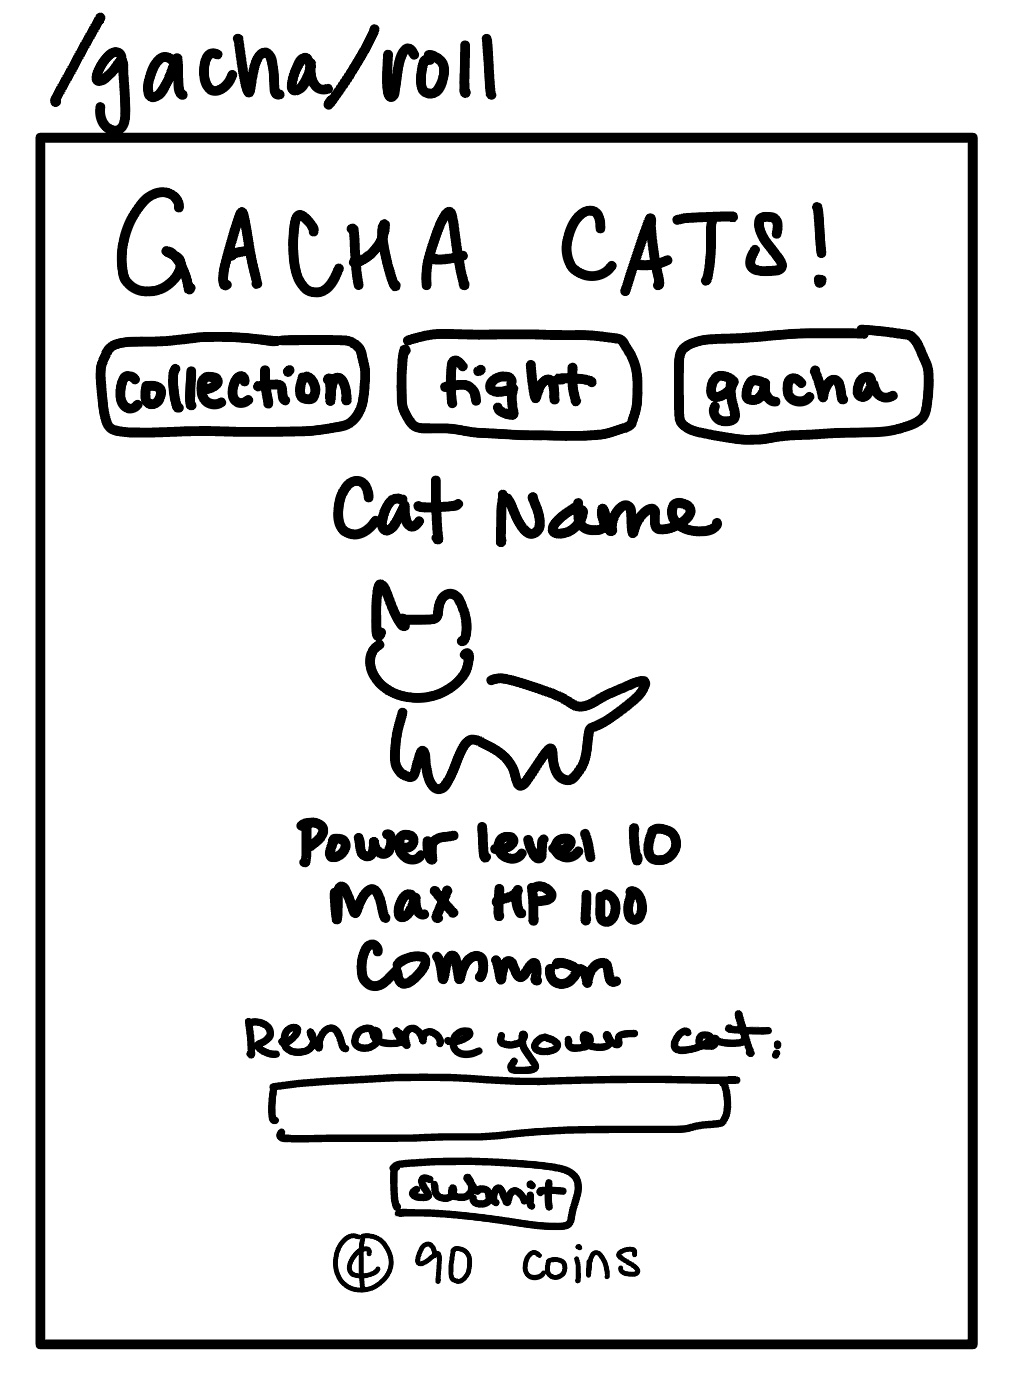 /gacha/roll
GACHA CATS!
collection fight gacha
Cat Name
Power level 10
Max HP 100
Common
Rename your cat:
submit
₵ 90 coins